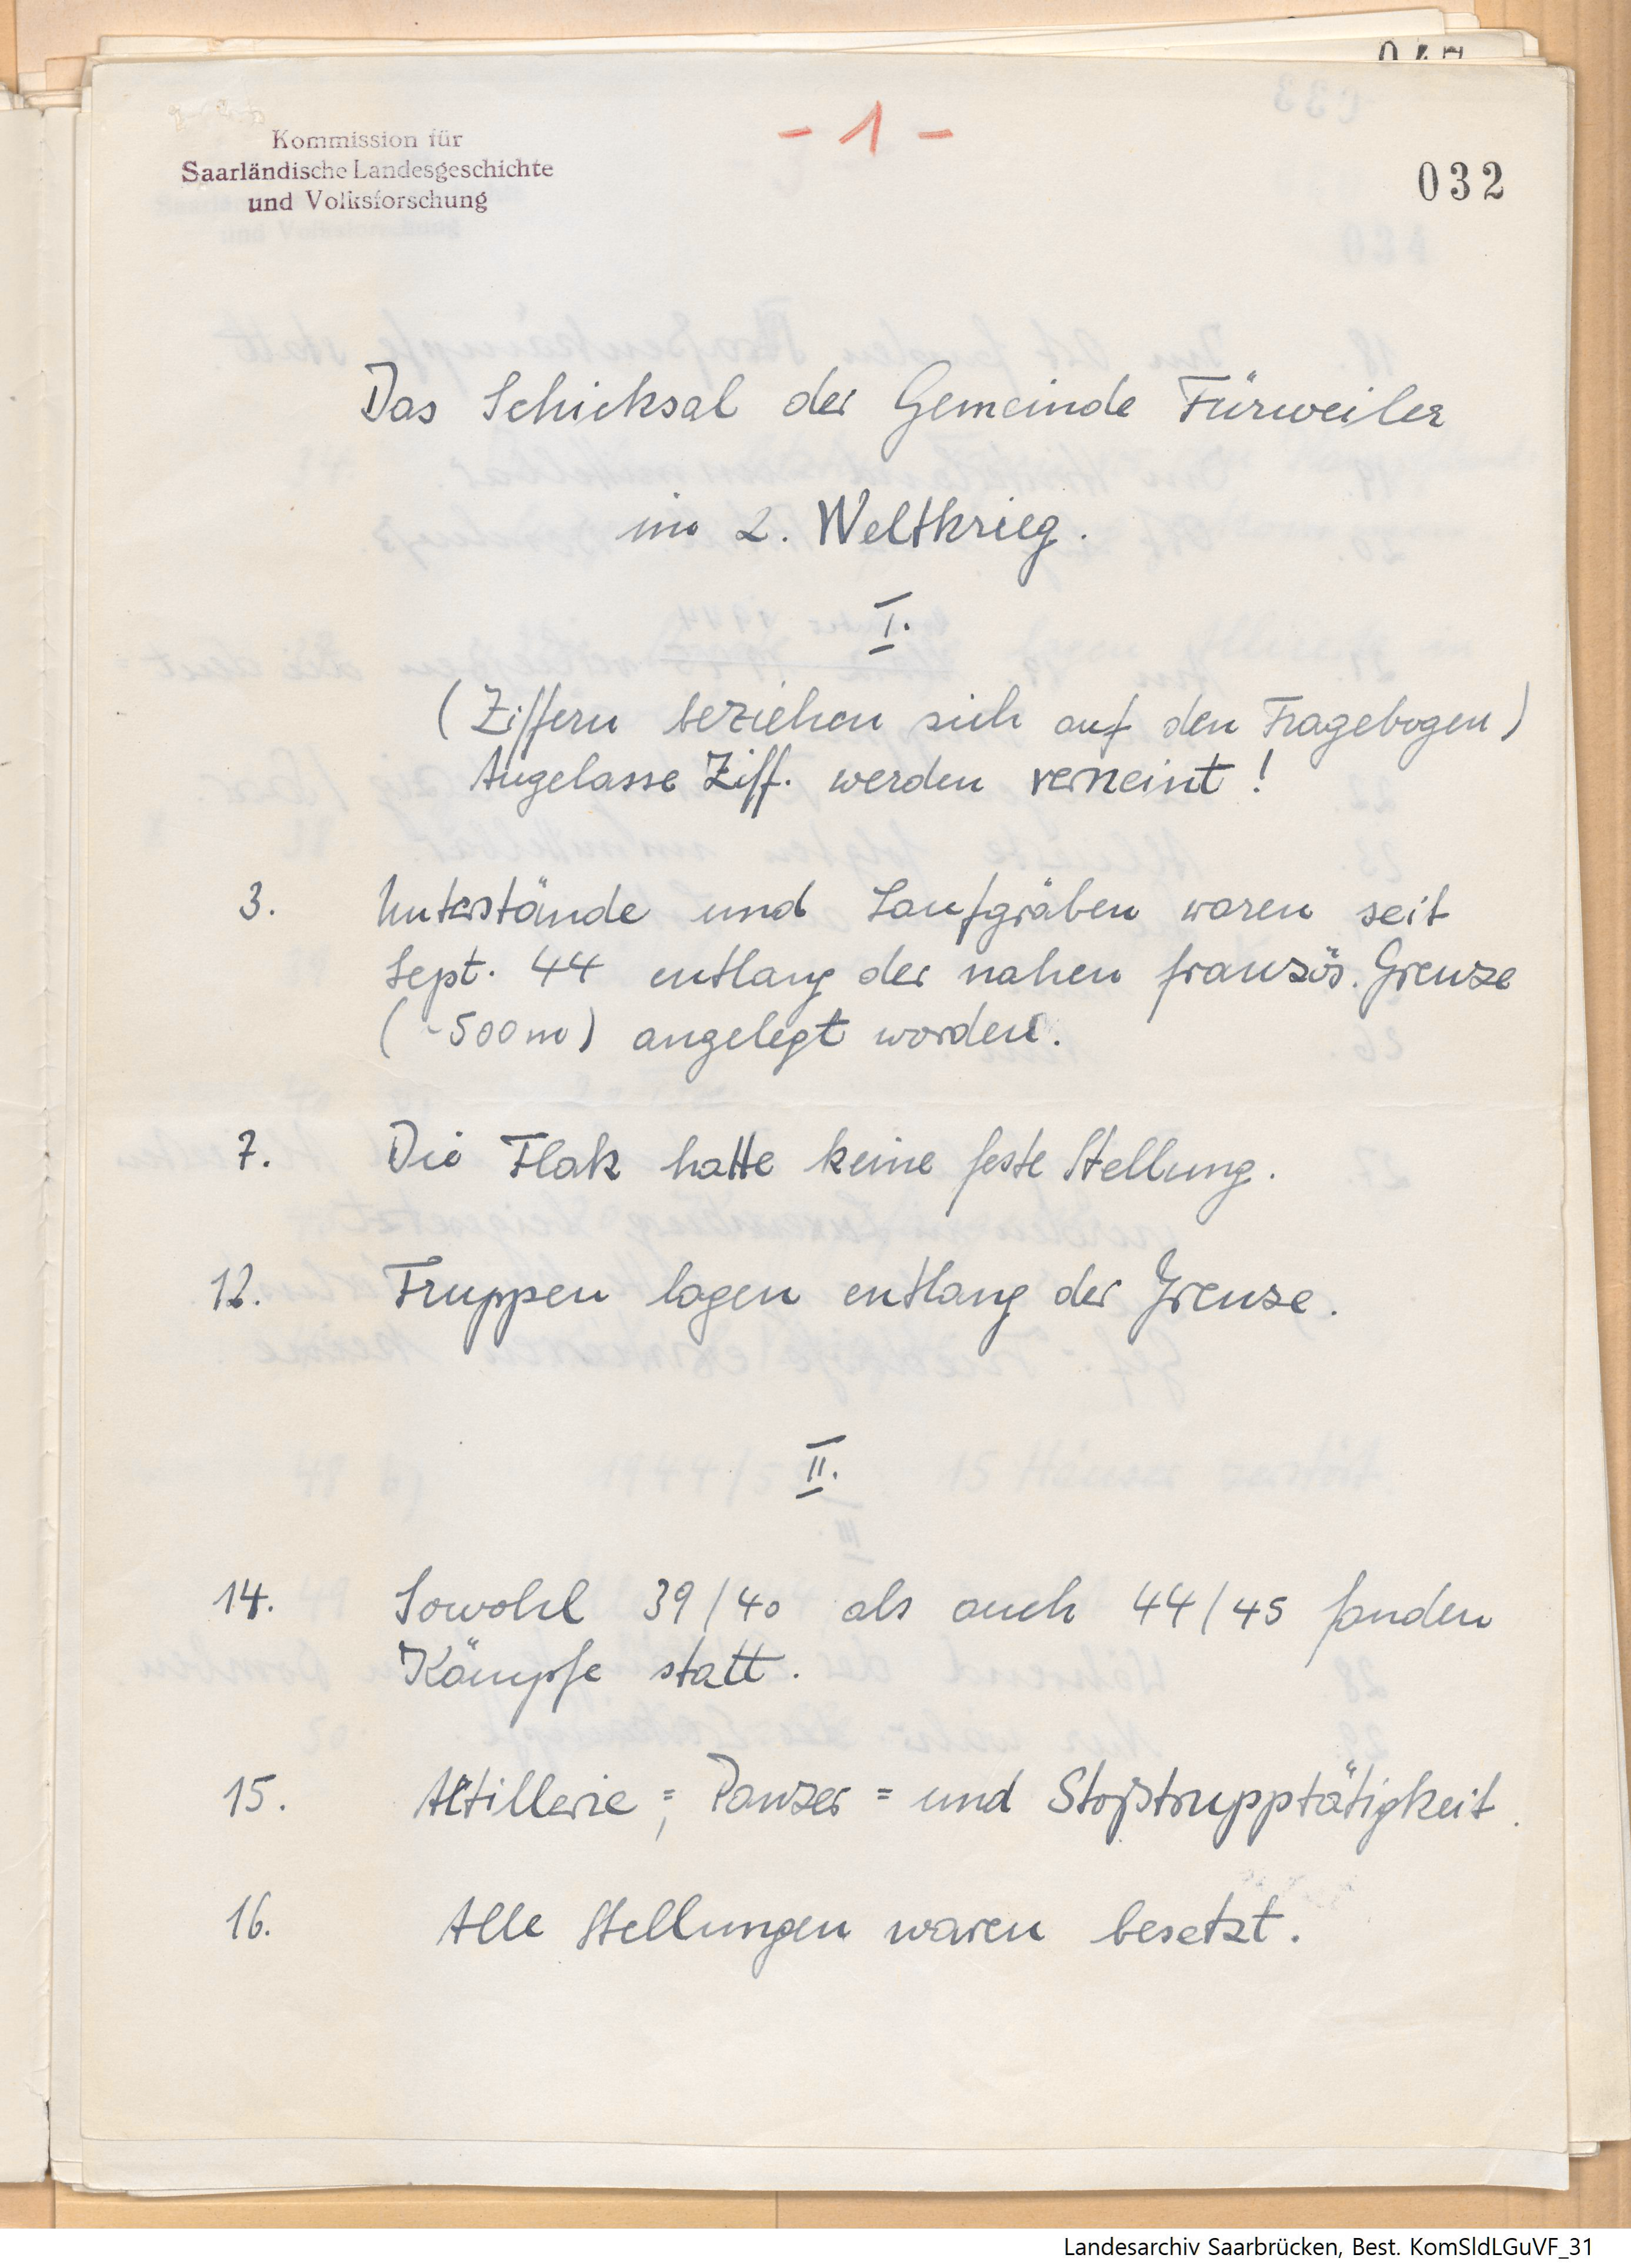 Kommission für
Saarländische Landesgeschichte
und Volksforschung
- 1 -
032
Das Schicksal der Gemeinde Fürweiler
im 2. Weltkrieg.
I.
(Ziffern beziehen sich auf den Fragebogen)
Augelasse Ziff. werden verneint!
3. Unterstände und Laufgräben waren seit
Sept. 44 entlang der nahen französ. Grenze
(~500m) angelegt worden.
7. Die Flak hatte keine feste Stellung.
12. Truppen lagen entlang der Grenze.
II.
14. Sowohl 39/40 als auch 44/45 fanden
Kämpfe statt.
15. Artillerie=, Panzer= und Stoßtrupptätigkeit.
16. Alle Stellungen waren besetzt.
Landesarchiv Saarbrücken, Best. KomSldLGuVF_31